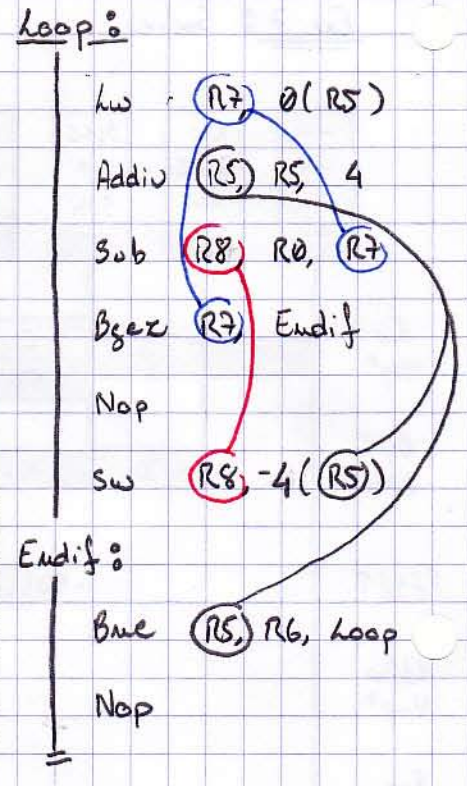 Loop :
Lw R7, 0( R5 )
Addiu R5, R5, 4
Sub R8, R0, R7
Bgez R7, Endif
Nop
Sw R8, -4( R5 )
Endif :
Bne R5, R6, Loop
Nop